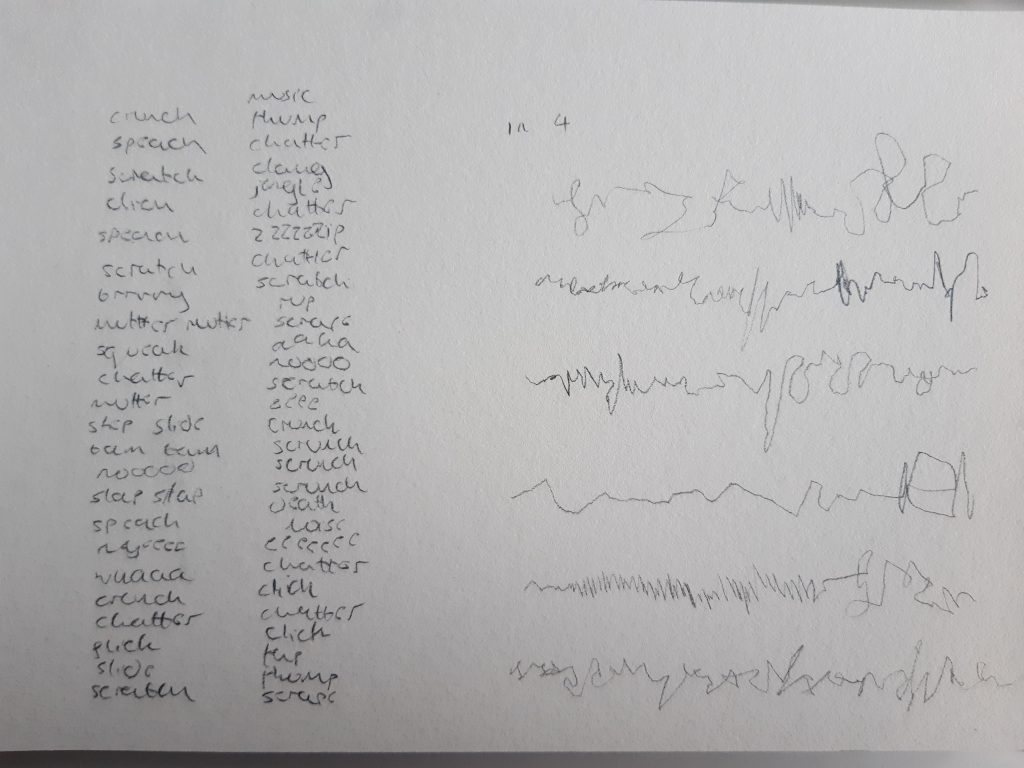 crunch
speach
scratch
click
speach
scratch
brrrrng
mutter mutter
squeak
chatter
mutter
skip slide
bam bam
nooooo
slap slap
speach
wuaaa
crunch
chatter
click
slide
scratch
music
thump
chatter
clang
jangle
chatter
zzzzzzip
chatter
scratch
rip
scrape
aaaa
noooo
scratch
eeee
crunch
scrunch
scrunch
scrunch
eeeeeee
chatter
click
chatter
click
tap
thump
scrape
in 4